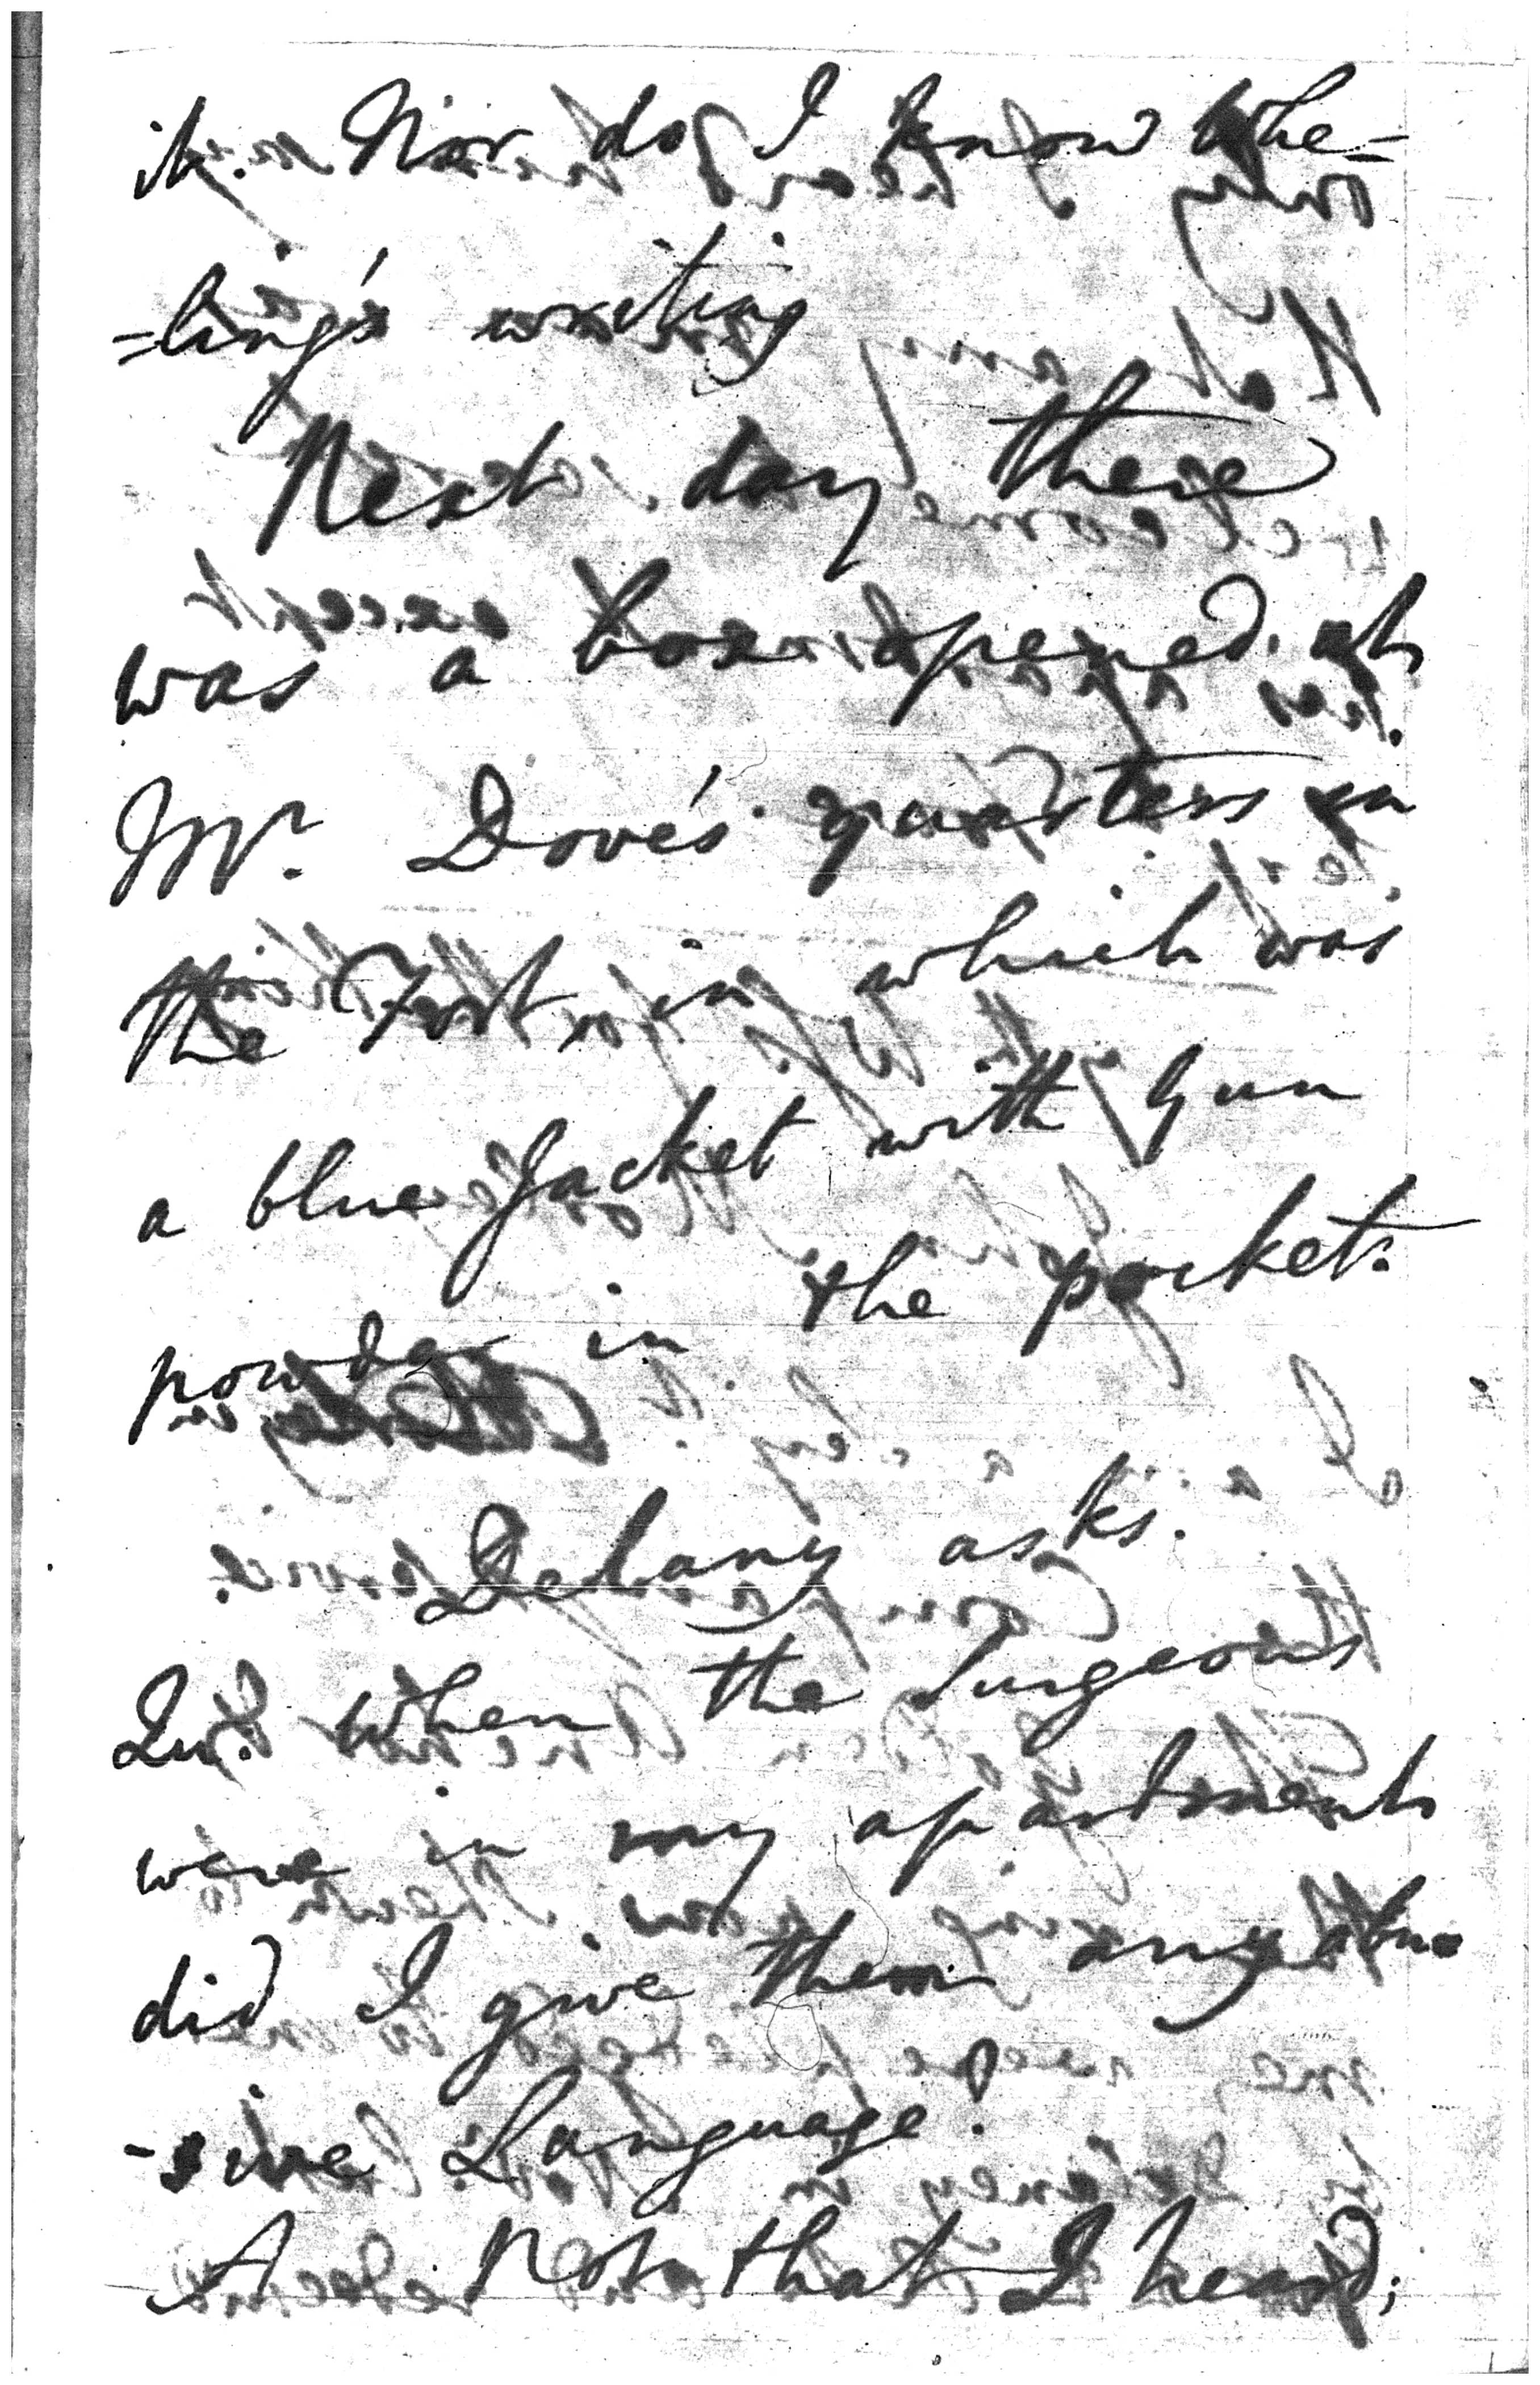 it. Nor do I know Whe=
=ling's writing
Next day there
was a box opened at
Mr. Dove's quarters in
the Fort, in which was
a blue Jacket with Gun
powder in the pocket.
Delany asks.
Qu. When the Surgeons
were in my apartments
did I give them any abu=
-sive Language?
A Not that I heard;